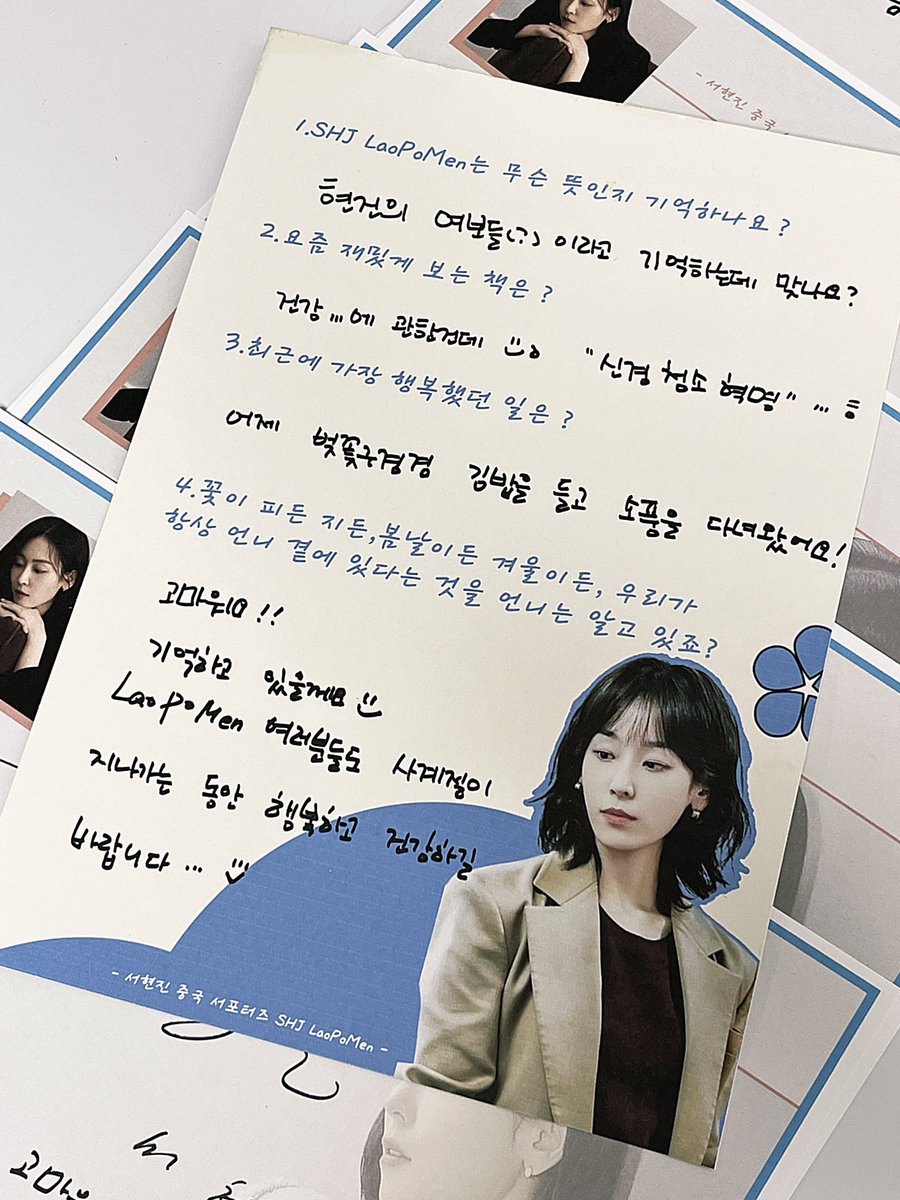 - 서현진 중국
1.SHJ LaoPoMen는 무슨 뜻인지 기억하나요?
현진의 여보들(?)이라고 기억하는데 맞나요?
2.요즘 재밌게 보는 책은?
건강...에 관한건데 "신경 청소 혁명"...
3.최근에 가장 행복했던 일은?
어제 벚꽃구경겸 김밥을 들고 소풍을 다녀왔어요!
4.꽃이 피든 지든,봄날이든 겨울이든, 우리가
항상 언니 곁에 있다는 것을 언니는 알고 있죠?
고마워요!!
기억하고 있을께요
LaoPoMen 여러분들도 사계절이
지나가는 동안 행복하고 건강하길
바랍니다...
- 서현진 중국 서포터즈 SHJ LaoPoMen -